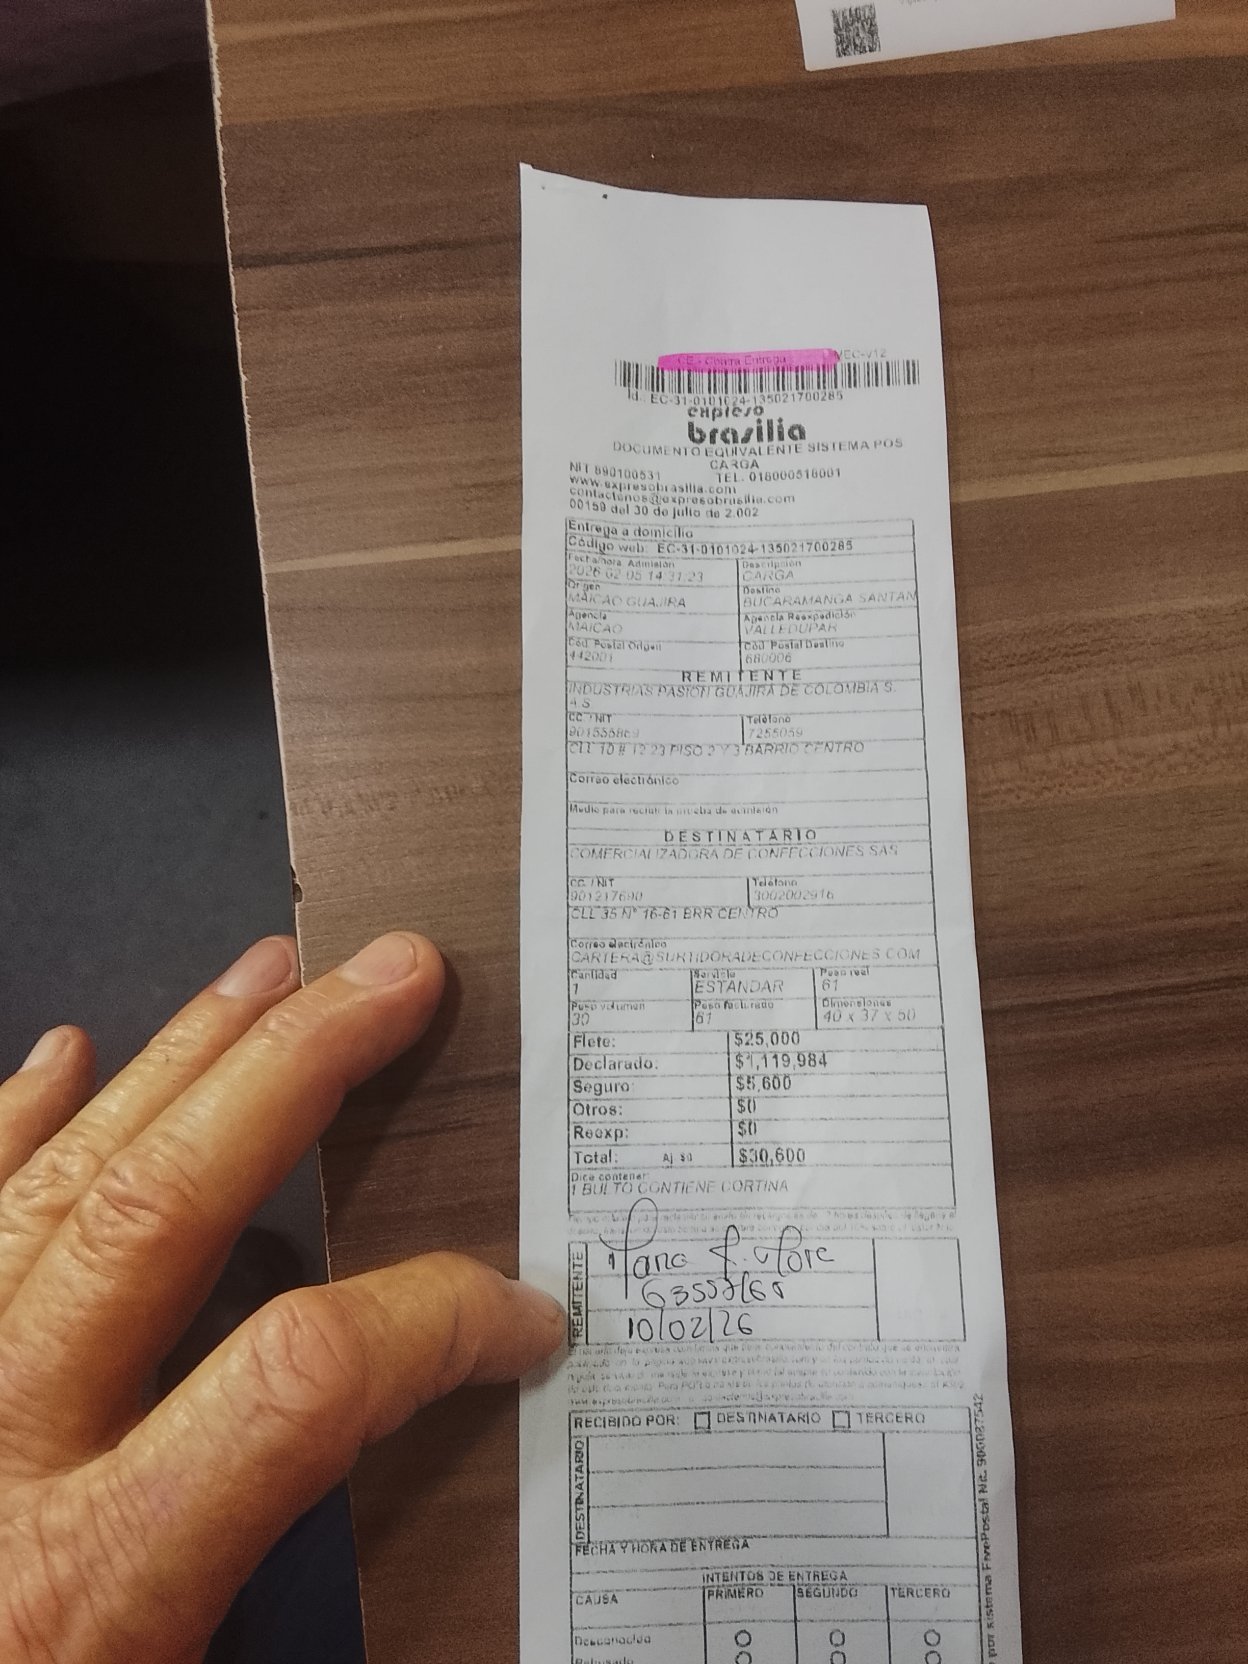 CE - Contra Entrega VEC-V12
Id.: EC-31-0101024-135021700285
expreso
brasilia
DOCUMENTO EQUIVALENTE SISTEMA POS
CARGA
NIT 890100531 TEL. 018000518001
www.expresobrasilia.com
contactenos@expresobrasilia.com
00159 del 30 de julio de 2.002
Entrega a domicilio
Código web: EC-31-0101024-135021700285
Fecha/hora Admisión Descripción
2026 02 05 14:31:23 CARGA
Origen Destino
MAICAO GUAJIRA BUCARAMANGA SANTAN
Agencia Agencia Reexpedición
MAICAO VALLEDUPAR
Cód. Postal Origen Cód. Postal Destino
442001 680006
REMITENTE
INDUSTRIAS PASION GUAJIRA DE COLOMBIA S.
A.S
CC. / NIT Teléfono
7255059
CLL 10 # 12 23 PISO 2 Y 3 BARRIO CENTRO
Correo electrónico
Medio para recibir la prueba de admisión
DESTINATARIO
COMERCIALIZADORA DE CONFECCIONES SAS
CC. / NIT Teléfono
901217690 3002002916
CLL 35 N° 16-61 BRR CENTRO
Correo electrónico
CARTERA@SURTIDORADECONFECCIONES.COM
Cantidad Servicio Peso real
1 ESTANDAR 61
Peso volumen Peso facturado Dimensiones
30 61 40 x 37 x 50
Flete: $25,000
Declarado: $1,119,984
Seguro: $5,600
Otros: $0
Reexp: $0
Total: Aj. $0 $30,600
Dice contener:
1 BULTO CONTIENE CORTINA
REMITENTE
10/02/26
RECIBIDO POR: DESTINATARIO TERCERO
DESTINATARIO
FECHA Y HORA DE ENTREGA
INTENTOS DE ENTREGA
CAUSA PRIMERO SEGUNDO TERCERO
Desconocido
Rehusado
por sistema FivePostal Nit. 900087542